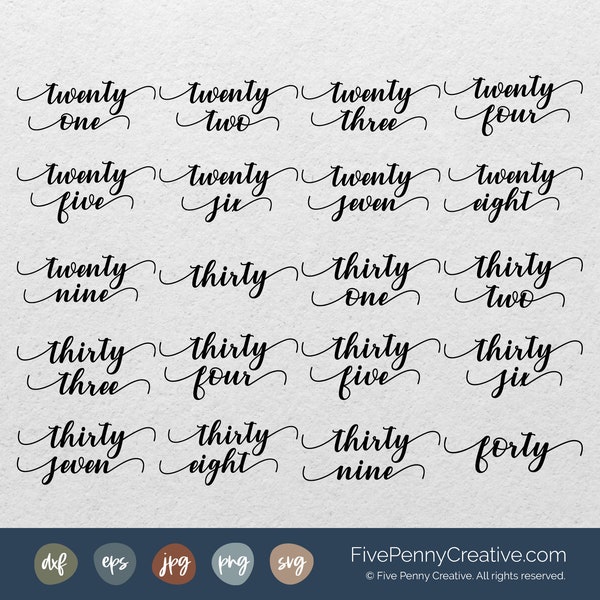 twenty one
twenty two
twenty three
twenty four
twenty five
twenty six
twenty seven
twenty eight
twenty nine
thirty
thirty one
thirty two
thirty three
thirty four
thirty five
thirty six
thirty seven
thirty eight
thirty nine
forty
dxf eps jpg png svg
FivePennyCreative.com
© Five Penny Creative. All rights reserved.